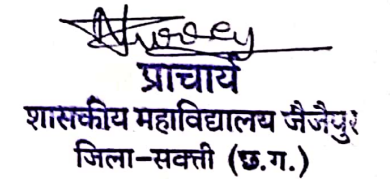 प्राचार्य
शासकीय महाविद्यालय जैजैपुर
जिला-सक्ती (छ.ग.)